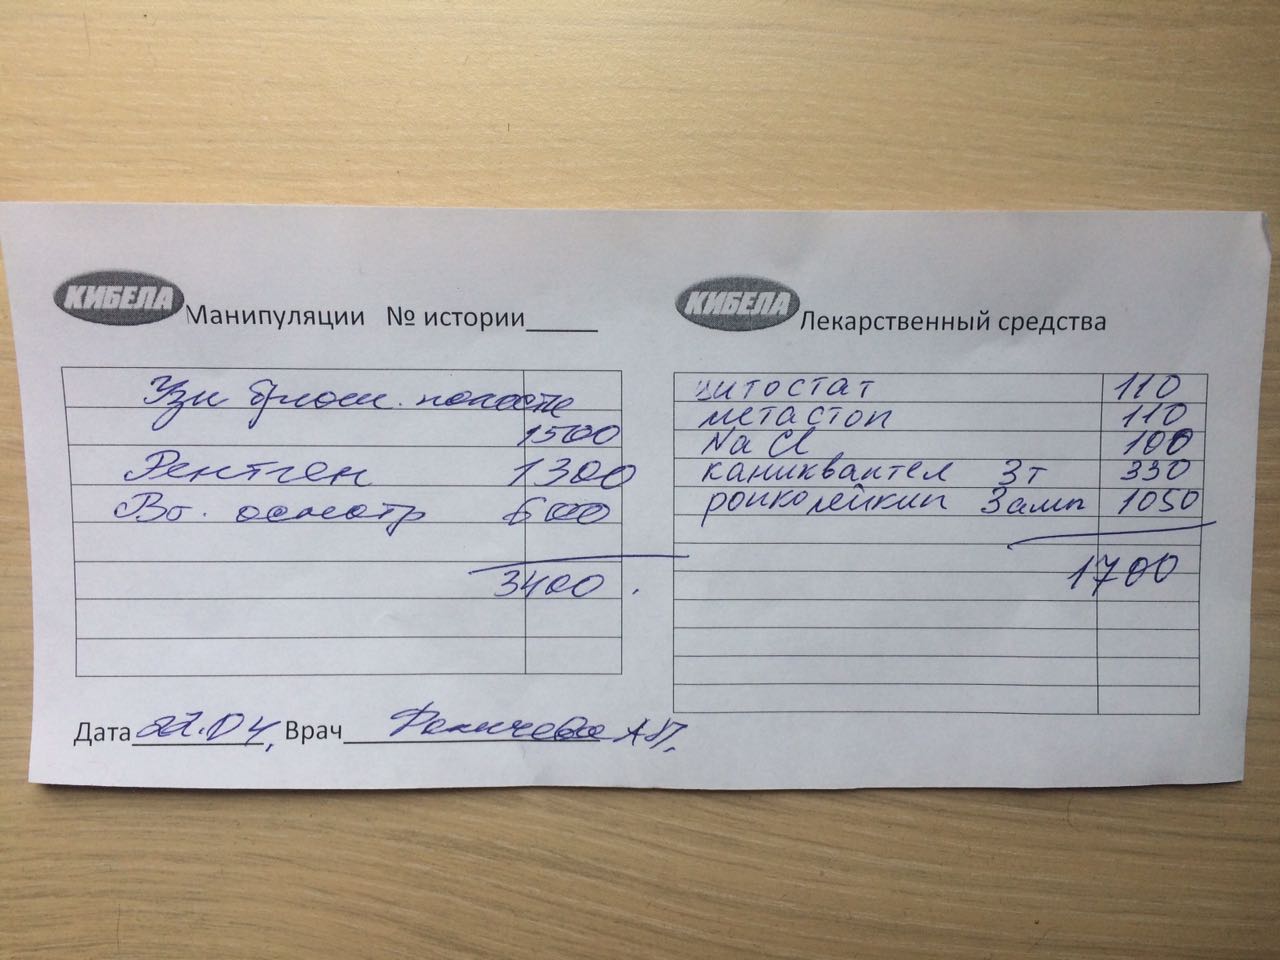 КИБЕЛА Манипуляции № истории_____
Узи брюш. полости
1500
Рентген 1300
Вт. осмотр 600
3400.
Дата 22.04, Врач А.П.
КИБЕЛА Лекарственный средства
цитостат 110
метастоп 110
NaCl 100
каниквантел 3т 330
ронколейкин 3амп 1050
1700